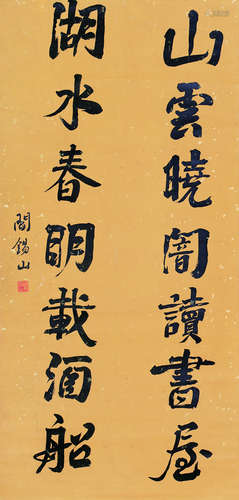 山雲曉闇讀書屋
湖水春明載酒船
閻錫山